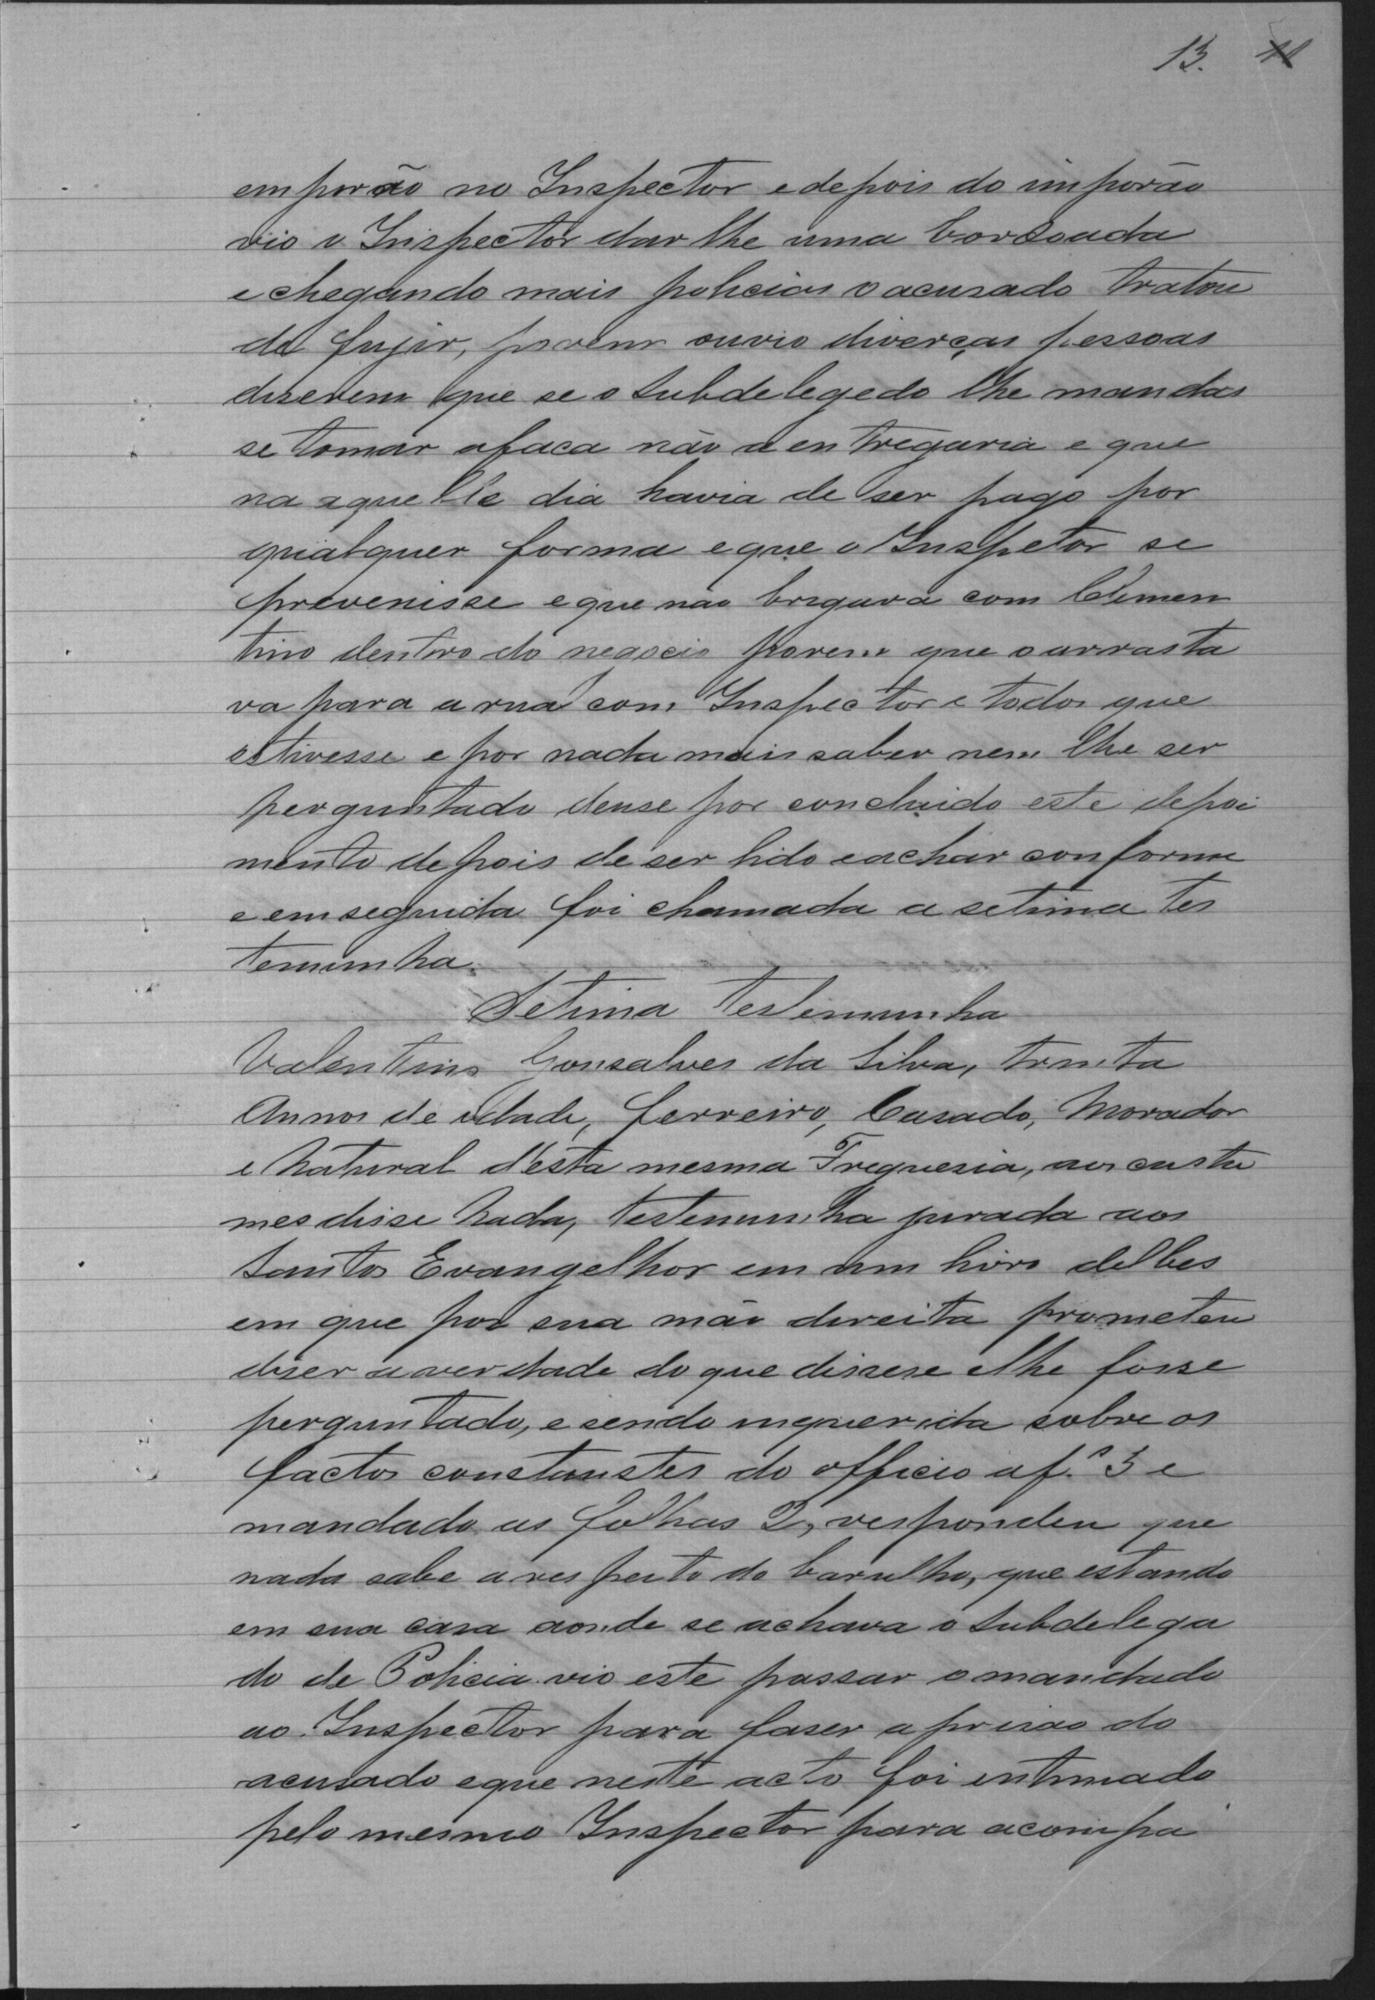 13. 11
emporão no Inspector e depois do imporão
vio o Inspector dar lhe uma bordoada
e chegando mais policias o acusado tratou
de fujir, porem ouvio diverças pessoas
diserem que se o Subdelegedo lhe mandas
se tomar afaca não a entregaria e que
na aquelle dia havia de ser pago por
qualquer forma e que o Inspetor se
prevenisse e que não brigava com Clemen
tino dentro do negocio porem que o arrasta
va para a rua com Inspector e todos que
estivesse e por nada mais saber nem lhe ser
perguntado deuse por concluido este depoi
mento depois de ser lido e achar conforme
e em seguida foi chamada a setima tes
temunha.
Setima testemunha
Valentino Gonsalves da Silva, trinta
Annos de idade, ferreiro, Casado, Morador
e Natural d'esta mesma Freguesia, aos custu
mes disse Nada, testemunha jurada aos
Santos Evangelhos em um livro delles
em que pos sua mão direita prometeu
diser a verdade do que dissese e lhe fosse
perguntado, e sendo inquerida sobre os
factos constanstes do officio a f.s 3 e
mandado as folhas 2, respondeu que
nada sabe a respeito do barulho, que estando
em sua casa aonde se achava o Subdelega
do de Policia vio este passar o mandado
ao Inspector para faser a prisao do
acusado e que neste acto foi intimado
pelo mesmo Inspector para acompa